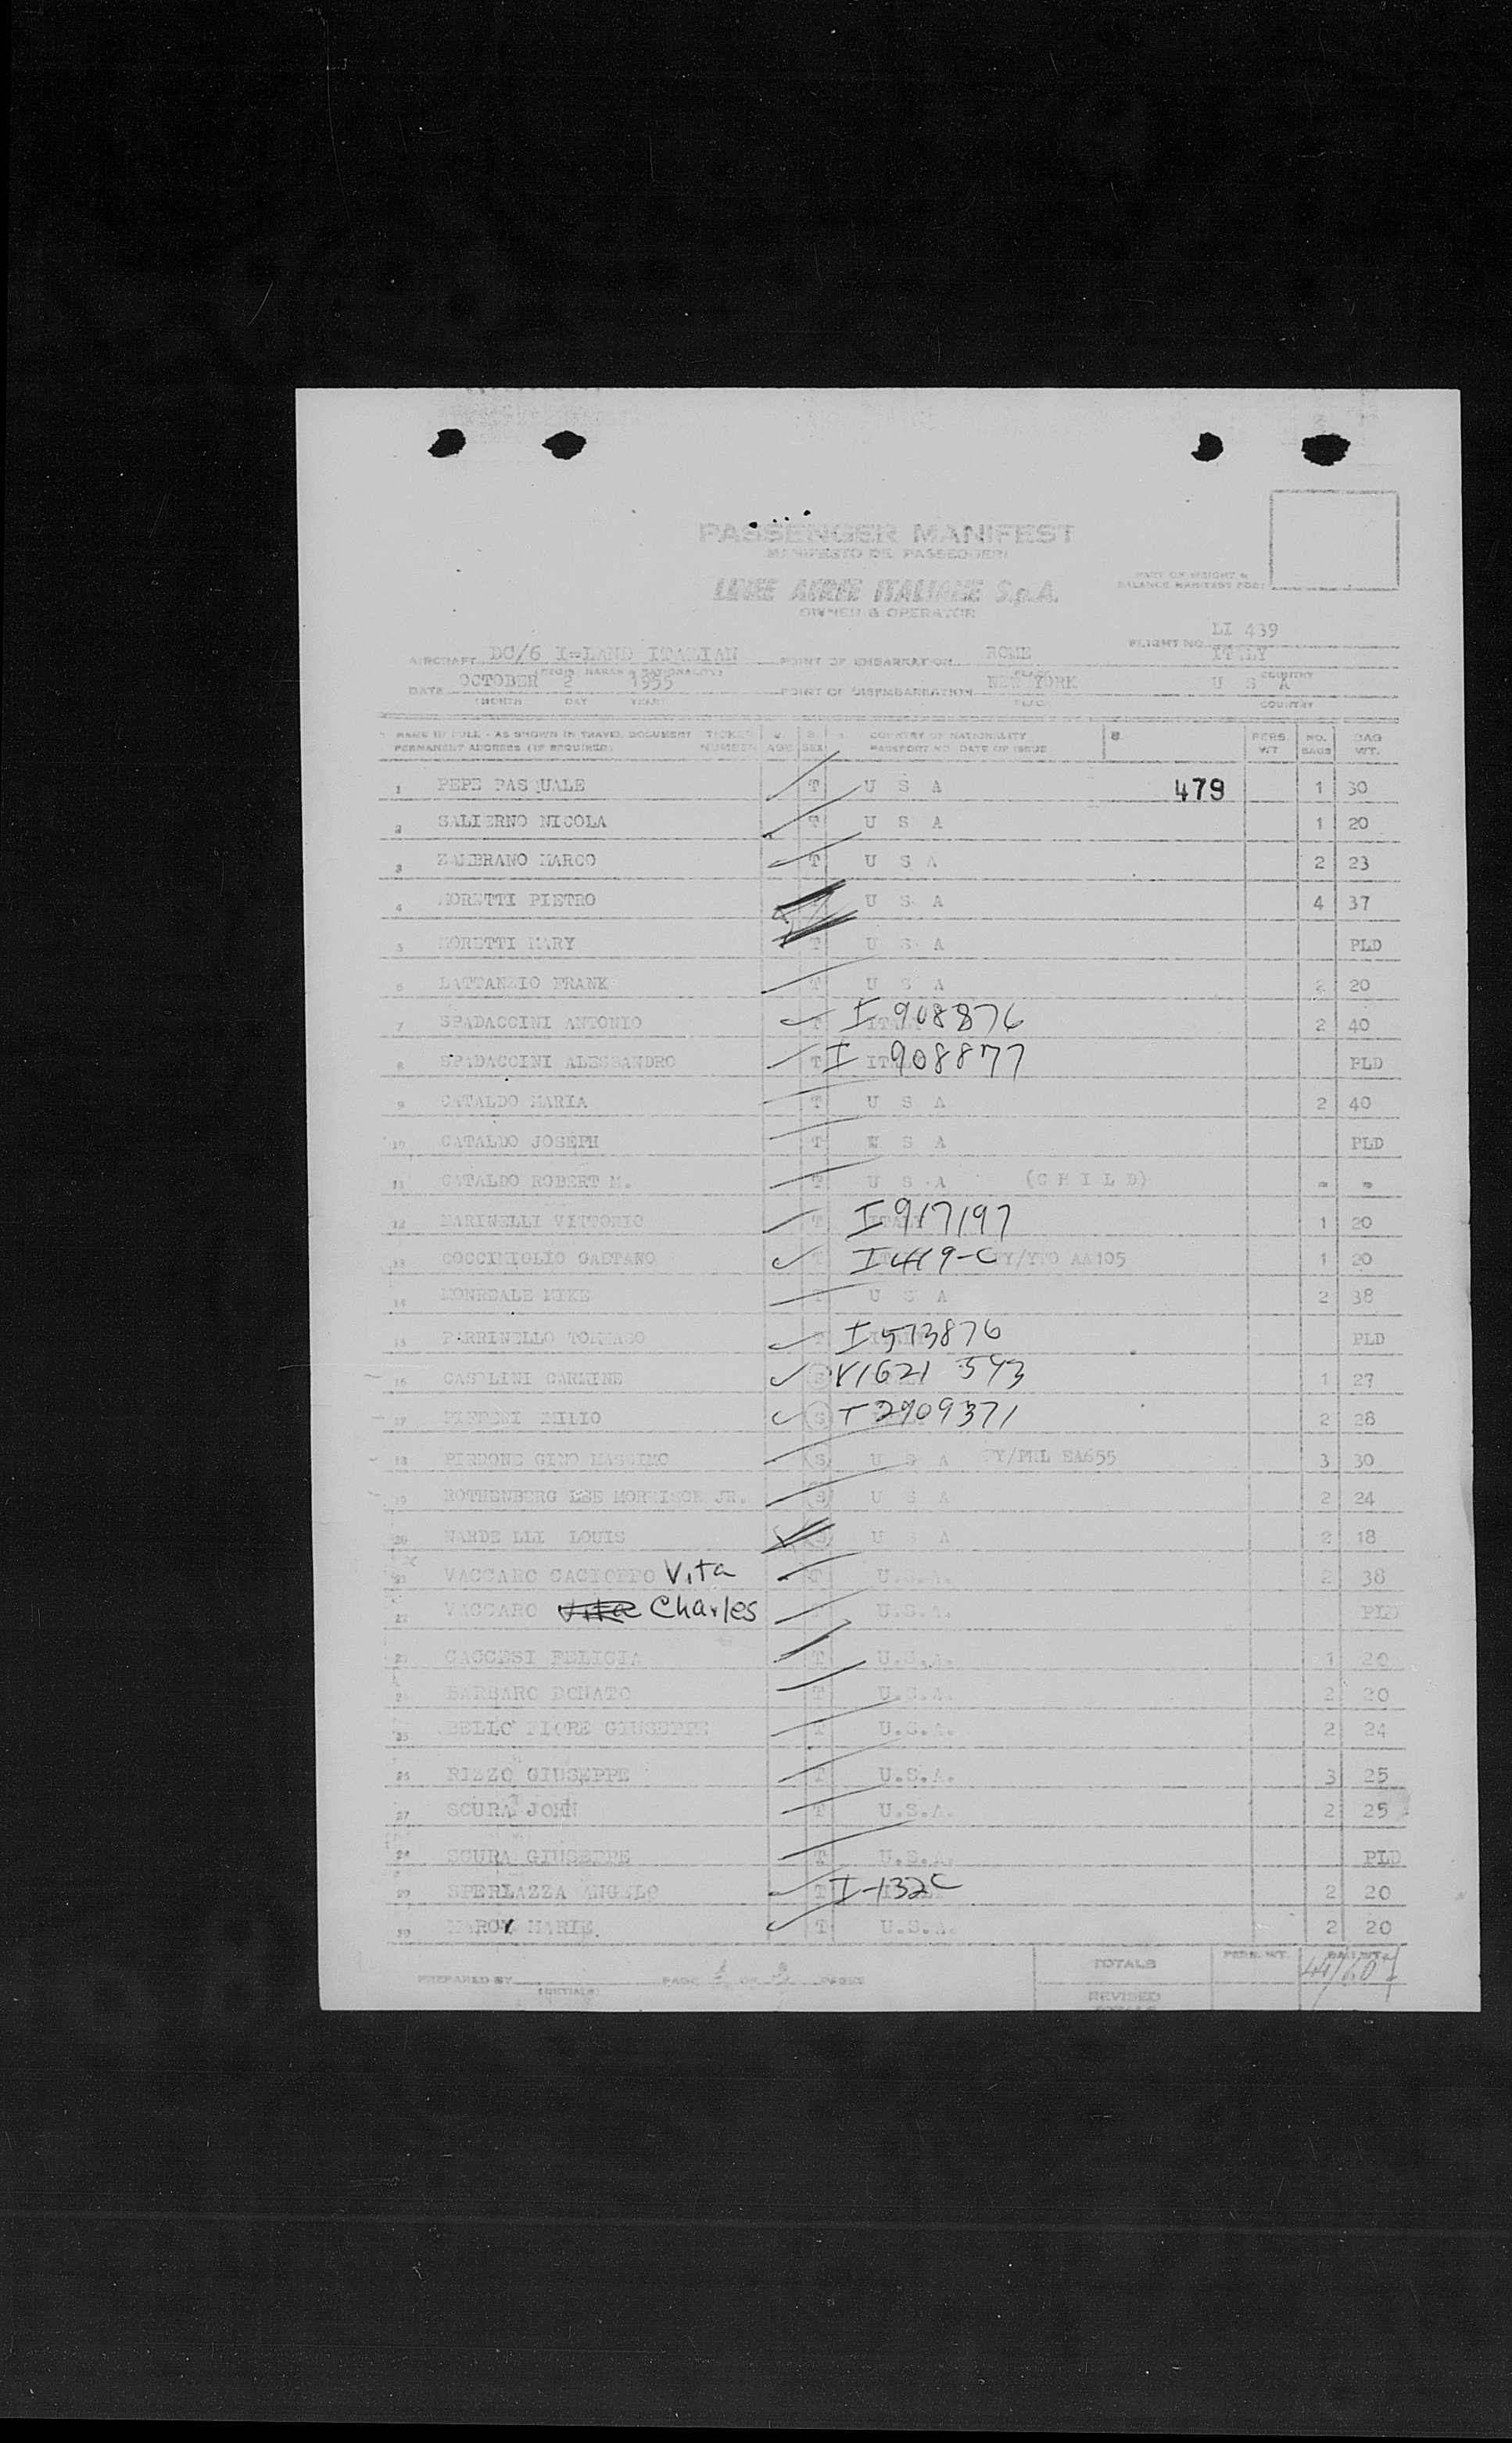 PASSENGER MANIFEST
MANIFESTO DE PASSEGGERI
LINEE AEREE ITALIANE S.p.A.
OWNER & OPERATOR
PART OF WEIGHT &
BALANCE MANIFEST FOR:
FLIGHT NO. LI 439
AIRCRAFT DC/6 I=LAND ITALIAN POINT OF EMBARKATION ROME ITALY
(REGIS. MARKS & NATIONALITY) PLACE COUNTRY
DATE OCTOBER 2 1955 POINT OF DISEMBARKATION NEW YORK U S A
(MONTH DAY YEAR) PLACE COUNTRY
NAME IN FULL - AS SHOWN IN TRAVEL DOCUMENT TICKET COUNTRY OF NATIONALITY 8. PERS. NO. BAG
PERMANENT ADDRESS (IF REQUIRED) NUMBER AGE SEX PASSPORT NO. DATE OF ISSUE WT BAGS WT.
1 PEPE PASQUALE T U S A 479 1 30
2 SALIERNO NICOLA T U S A 1 20
3 ZAMBRANO MARCO T U S A 2 23
4 MORETTI PIETRO T U S A 4 37
5 MORETTI MARY T U S A PLD
6 LATTANZIO FRANK T U S A 2 20
7 SPADACCINI ANTONIO T ITALY I 908876 2 40
8 SPADACCINI ALESSANDRO T ITALY I 908877 PLD
9 CATALDO MARIA T U S A 2 40
10 CATALDO JOSEPH T U S A PLD
11 CATALDO ROBERT M. T U S A (C H I L D) = =
12 MARINELLI VITTORIO T I 917197 1 20
13 COCCIMIGLIO GAETANO T I 419-C NY/YTO AA105 1 20
14 MONREALE MIKE T U S A 2 38
15 PARRINELLO TOMMASO T I 573876 PLD
16 CASOLINI CARMINE S V1621 543 1 27
17 EMILIO S I 2909371 2 28
18 PIERDONE GINO MASSIMO S U S A NY/PHL EA655 3 30
19 ROTHENBERG LEE MORRISON JR. S U S A 2 24
20 NARDE LLI LOUIS S U S A 2 18
21 VACCARO CACIOPPO Vita T U.S.A. 2 38
22 VACCARO Vita Charles T U.S.A. PLD
23 CACCESI FELICIA T U.S.A. 1 20
24 BARBARO DONATO T U.S.A. 2 20
25 BELLO FIORE GIUSEPPE T U.S.A. 2 24
26 RIZZO GIUSEPPE T U.S.A. 3 25
27 SCURA JOHN T U.S.A. 2 25
28 SCURA GIUSEPPE T U.S.A. PLD
29 SPERLAZZA ANGELO T I-132C 2 20
30 MAROY MARIE. T U.S.A. 2 20
PREPARED BY PAGE OF PAGES TOTALS PERS. WT.
(INITIALS) REVISED